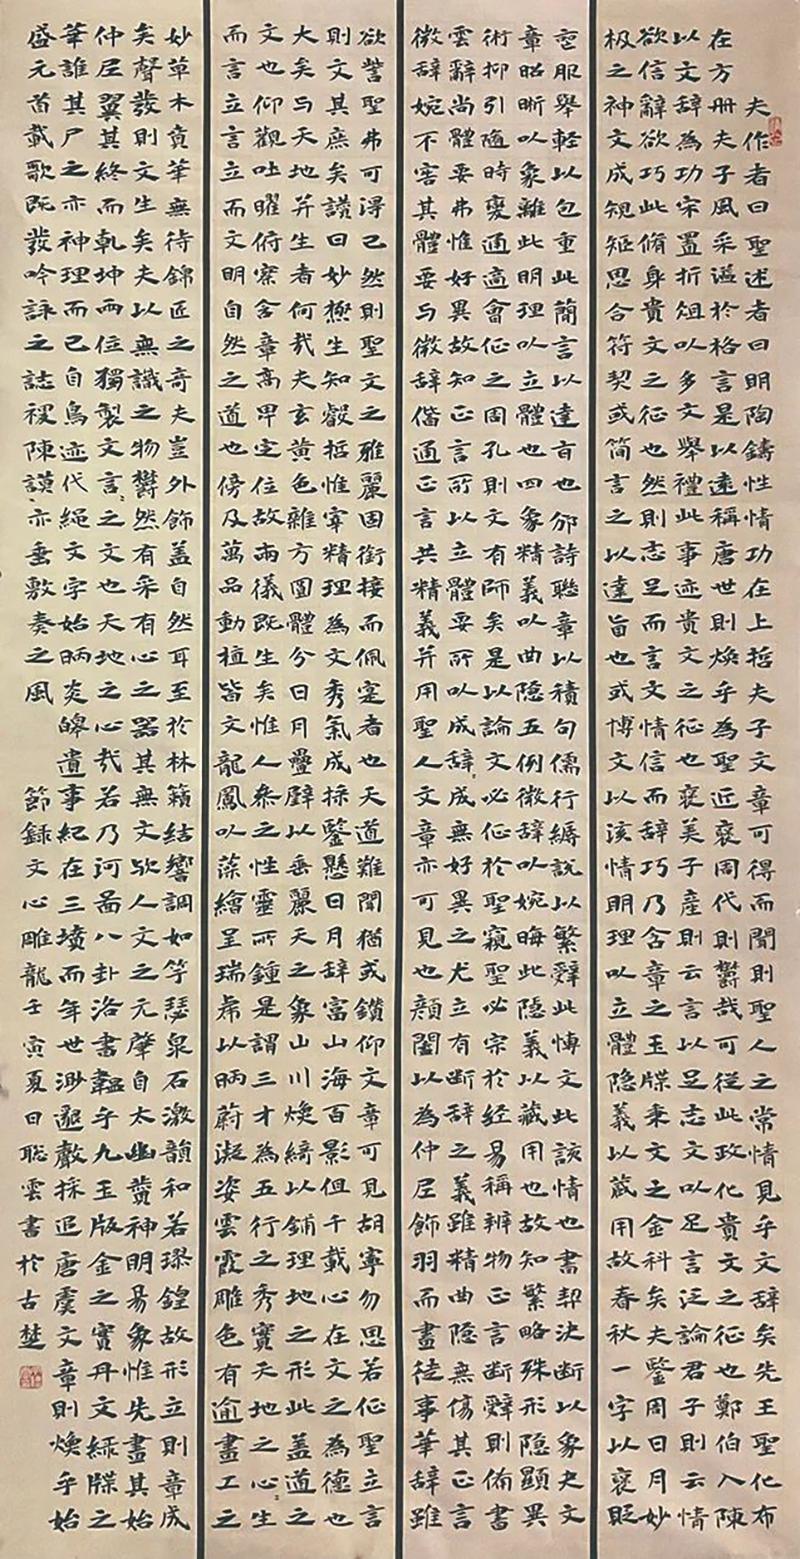 夫作者曰聖述者曰明陶鑄性情功在上哲夫子文章可得而聞則聖人之常情見乎文辞矣先王聖化布
在方册夫子風采溢於格言是以遠稱唐世則煥乎為聖近褒周代則鬱哉可從此政化貴文之征也鄭伯入陳
以文辞為功宋置折俎以多文舉禮此事迹貴文之征也褒美子產則云言以足志文以足言泛論君子則云情
欲信辭欲巧此脩身貴文之征也然則志足而言文情信而辞巧乃含章之玉牒秉文之金科矣夫鑒周日月妙
极之神文成規矩思合符契或简言之以達旨也或博文以该情明理以立體隐義以藏用故春秋一字以褒貶
喪服舉輕以包重此簡言以達旨也邠詩聯章以積句儒行縟説以繁辭此博文此该情也書契决斷以象夬文
章昭晰以象離此明理以立體也四象精義以曲隐五例微辞以婉晦此隐義以藏用也故知繁略殊形隐顯異
術抑引隨時變通適會征之周孔則文有師矣是以論文必征於聖窺聖必宗於经易稱辨物正言断辭則備書
雲辭尚體要弗惟好異故知正言所以立體要所以成辞成無好異之尤立有断辞之義雖精曲隐無傷其正言
微辞婉不害其體要与微辞偕通正言共精義并用聖人文章亦可見也顔闔以為仲尼飾羽而畫徒事華辞雖
欲訾聖弗可得已然則聖文之雅麗固銜接而佩寔者也天道難聞猶或鑽仰文章可見胡寧勿思若征聖立言
則文其庶矣讃曰妙極生知睿哲惟宰精理為文秀氣成採鑒懸日月辞富山海百影但千載心在文之為德也
大矣与天地并生者何哉夫玄黄色雜方圆體分日月疊璧以垂麗天之象山川焕綺以鋪理地之形此盖道之
文也仰觀吐曜俯察含章高卑定位故兩儀既生矣惟人叅之性靈所鍾是謂三才為五行之秀實天地之心生
而言立言立而文明自然之道也傍及萬品動植皆文龍鳳以藻繪呈瑞虎以炳蔚凝姿雲霞雕色有逾畫工之
妙草木賁華無待錦匠之奇夫豈外飾盖自然耳至於林籟結響調如竽瑟泉石激韻和若璆鍠故形立則章成
矣聲發則文生矣夫以無識之物鬱然有采有心之器其無文欤人文之元肈自太幽贊神明易象惟先畫其始
仲尼翼其終而乾坤兩位獨製文言之文也天地之心哉若乃河啚八卦洛書韞乎九玉版金之實丹文緑牒之
華誰其尸之亦神理而已自鳥迹代繩文字始炳炎皞遺事紀在三墳而年世渺邈聲採追唐虞文章則焕乎始
盛元首載歌既發吟詠之誌稷陳謨亦垂敷奏之風 節録文心雕龍壬寅夏日聡雲書於古楚